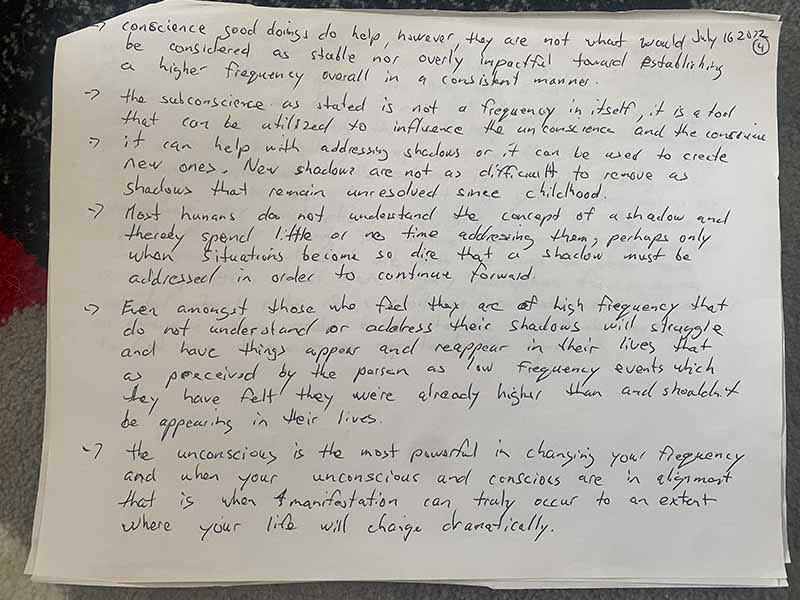 July 16 2022
④
→ conscience good doings do help, however, they are not what would
be considered as stable nor overly impactful toward establishing
a higher frequency overall in a consistent manner.
→ the subconscience as stated is not a frequency in itself, it is a tool
that can be utilized to influence the unconscience and the conscience
→ it can help with addressing shadows or it can be used to create
new ones. New shadows are not as difficult to remove as
shadows that remain unresolved since childhood.
→ Most humans do not understand the concept of a shadow and
thereby spend little or no time addressing them, perhaps only
when situations become so dire that a shadow must be
addressed in order to continue forward.
→ Even amongst those who feel they are of high frequency that
do not understand or address their shadows will struggle
and have things appear and reappear in their lives that
as perceived by the person as low frequency events which
they have felt they were already higher than and shouldn't
be appearing in their lives.
→ the unconscious is the most powerful in changing your frequency
and when your unconscious and conscious are in alignment
that is when manifestation can truly occur to an extent
where your life will change dramatically.